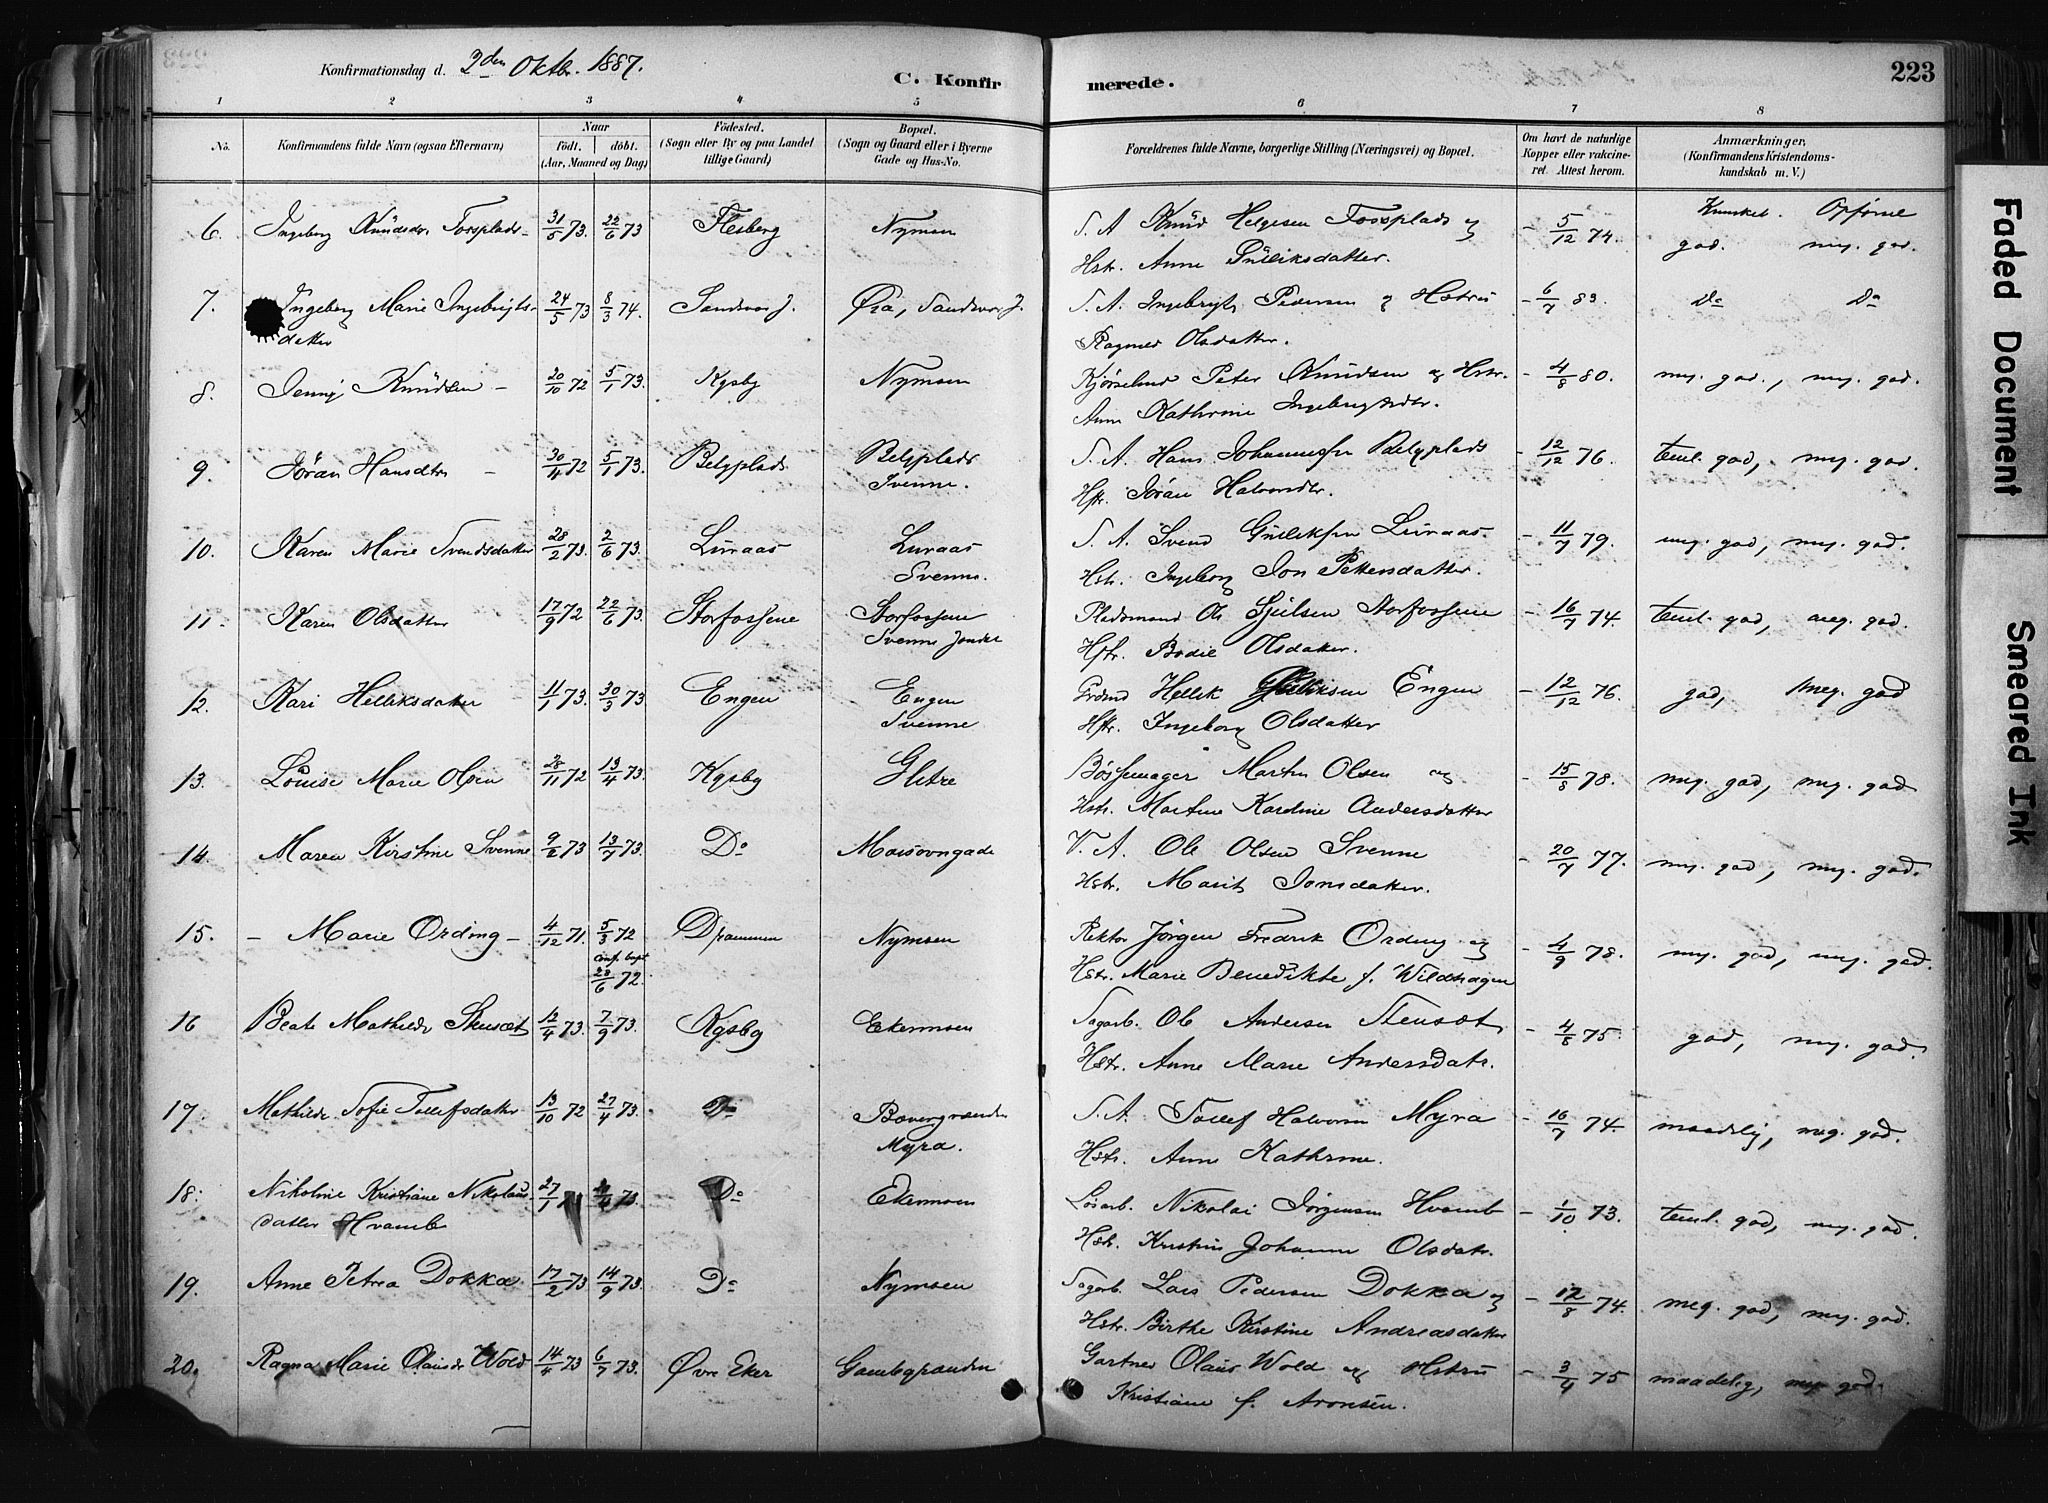 Konfirmationsdag d. 2den Oktbr. 1887.
C. Konfirmerede.
223
1 2 3 4 5 6 7 8
No.
Konfirmandens fulde Navn (ogsaa Efternavn)
Naar
født. døbt.
(Aar, Maaned og Dag)
Fødested.
(Sogn eller By og paa Landet
tillige Gaard)
Bopæl.
(Sogn og Gaard eller i Byerne
Gade og Hus-No.
Forældrenes fulde Navne, borgerlige Stilling (Næringsvei) og Bopæl.
Om havt de naturlige
Kopper eller vakcine-
ret. Attest herom.
Anmærkninger,
(Konfirmandens Kristendoms-
kundskab m. V.)
Kunsket. Opførsel
6. Ingeborg Knudsdr. Fossplads 31/5 73. 22/6 73 Flesberg Nymoen S. A. Knud Helgesen Fossplads og 5/12 74. god. meg. god.
Hstr. Anne Gulliksdatter.
7. Ingeborg Marie Ingebrigts- 24/5 73 8/3 74. Sandsvær J. Øia, Sandsvær J. S. A. Ingebrigt Pedersen og Hstru 6/7 83. Do Do
datter Ragnild Olsdatter.
8. Jenny Knudsen 20/10 72 5/1 73. Kgsby Nymoen Kjørselmd Peter Knudsen og Hstr. 4/8 80. meg. god., meg. god.
Anne Kathrine Ingebrigtsdtr.
9. Jöran Hansdtr 30/4 72 5/1 73. Belgplads Belgplads S. A. Hans Johannessen Belgplads 12/12 76. teml. god, meg. god.
Svenne. Hstr. Jöran Halvorsdtr.
10. Karen Marie Svendsdatter 28/2 73. 2/6 73. Luraas Luraas S. A. Svend Gulliksen Luraas 11/7 79. meg. god, meg. god.
Svenne. Hstr. Ingeborg Jon Pettersdatter.
11. Karen Olsdatter 17/9 72 22/6 73. Storfossene Storfossene Pladsmand Ole Gjulsen Storfossene 16/7 74. teml. god, meg. god.
Svenne Jondal Hstr. Bodil Olsdatter.
12. Kari Helliksdatter 11/1 73. 30/3 73 Engen Engen Grdmd Hellik Gulliksen Engen 12/12 76. god, meg. god
Svenne Hstr. Ingeborg Olsdatter
13. Louise Marie Olsen 28/11 72 13/4 73. Kgsby Glitre Bøssemager Martin Olsen og 15/8 78. meg. god, meg. god
Hstr. Martine Karoline Andersdatter
14. Maren Kirstine Svenne 9/2 73 13/7 73. Do Masovngade V. A. Ole Olsen Svenne 20/7 77. meg. god, meg. god.
Hstr. Marit Jonsdatter.
15. Marie Ording 4/12 71. 5/3 72 Drammen Nymoen Rektor Jørgen Fredrik Ording og 4/9 78. meg. god, meg. god.
conf. bapt. 28/6 72. Hstr. Marie Benedikte f. Wildhagen
16 Beate Mathilde Stensæt 12/4 73. 7/9 73. Kgsby Ekermoen Sagarb. Ole Andersen Stensæt, 4/8 75. god, meg. god.
Hstr. Anne Marie Andersdatr.
17. Mathilde Sofie Tollefsdatter 13/10 72 27/4 73. Do Bævergrænden S. A. Tollef Halvorsen Myra 16/7 74. maadelig, meg. god.
Myra. Hstr. Anne Kathrine.
18. Nikoline Kristiane Nikolais- 27/1 73. Do Ekermoen Løsarb. Nikolai Jørgensen Hvamb 1/10 73. teml. god, meg. god.
datter Hvamb Hstr. Kristine Johanne Olsdatr.
19. Anne Petrea Dokka 17/2 73 14/9 73. Do Nymoen Sagarb. Lars Pedersen Dokka og 12/8 74. meg. god, meg. god.
Hstr. Birthe Kirstine Andreasdatter
20. Ragna Marie Olausdr Wold 14/4 73 6/7 73. Øvre Eker Gambegrænden Gartner Olaus Wold og Hstru 3/4 75 maadelig, meg. god.
Kristiane f. Aronsen.
Faded Document
Smeared Ink